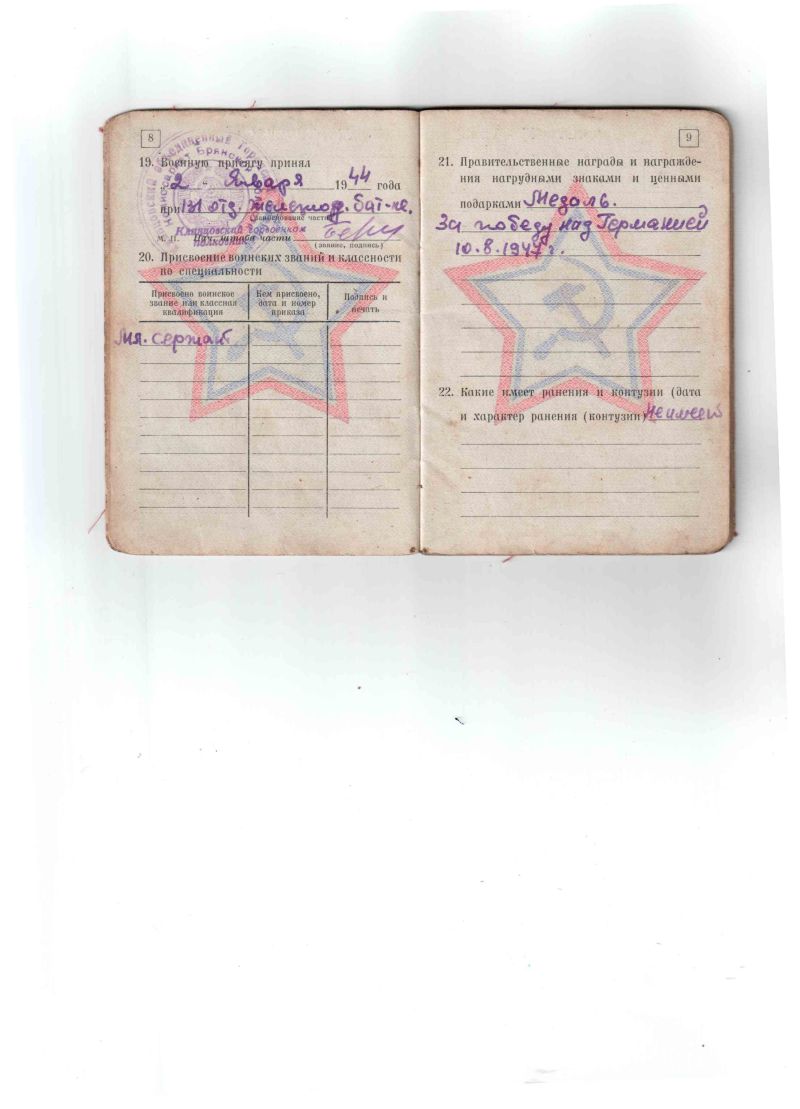 8
19. Военную присягу принял
„2 " Января 1944 года
при 131 отд. бат-не.
(наименование части)
Клинцовский горвоенком
Полковник
М. П. Нач. штаба части
(звание, подпись)
20. Присвоение воинских званий и классности
по специальности
Присвоено воинское
звание или классная
квалификация
Кем присвоено,
дата и номер
приказа
Подпись и
печать
Мл. сержант
9
21. Правительственные награды и награжде-
ния нагрудными знаками и ценными
подарками Медаль.
За победу над Германией
10.8.1947 г.
22. Какие имеет ранения и контузии (дата
и характер ранения (контузии) Не имеет